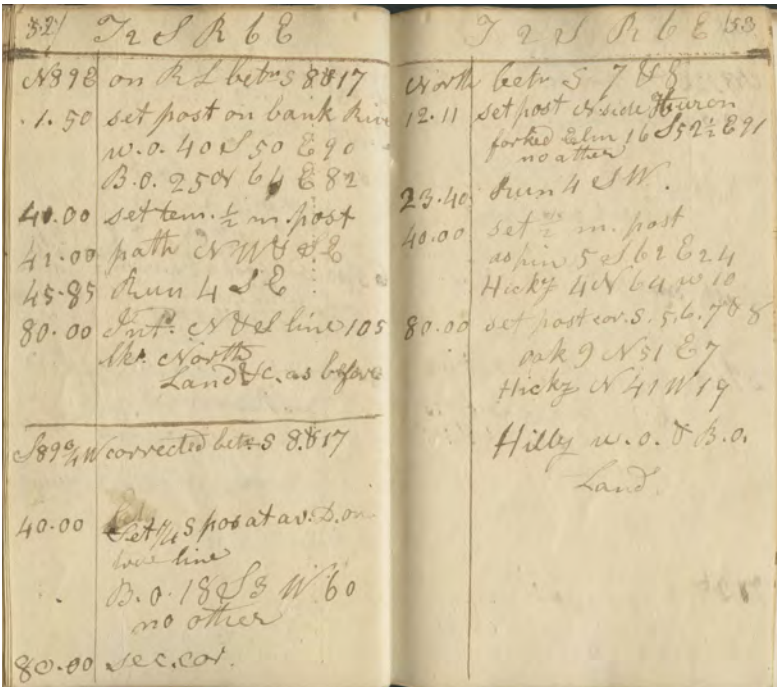 52 T 2 S R 6 E
N89E on RL betn S 8&17
1.50 set post on bank River
w.o. 40 S 50 E 90
B.O. 25 N 64 E 82
40.00 set tem. ½ m. post
41.00 path NW & S.E
45.85 Run 4 S E
80.00 Int. N&S line 105
lks. North
Land &c. as before
S89¾W corrected betn S 8.&17
40.00 Set ¼ S pos at av. D. on
true line
B.O. 18 S 3 W 60
no other
80.00 sec. cor.
T 2 S R 6 E 53
North betn S 7 & 8
12.11 set post N side Huron
forked Elm 16 S 52½ E 91
no other
23.40 Run 4 S W.
40.00 set ½ m. post
aspin 5 S 62 E 24
Hicky 4 N 64 w 10
80.00 set post cor. S. 5.6.7 & 8
oak 9 N 51 E 7
Hicky N 41 W 19
Hilly w.o. & B.O.
Land